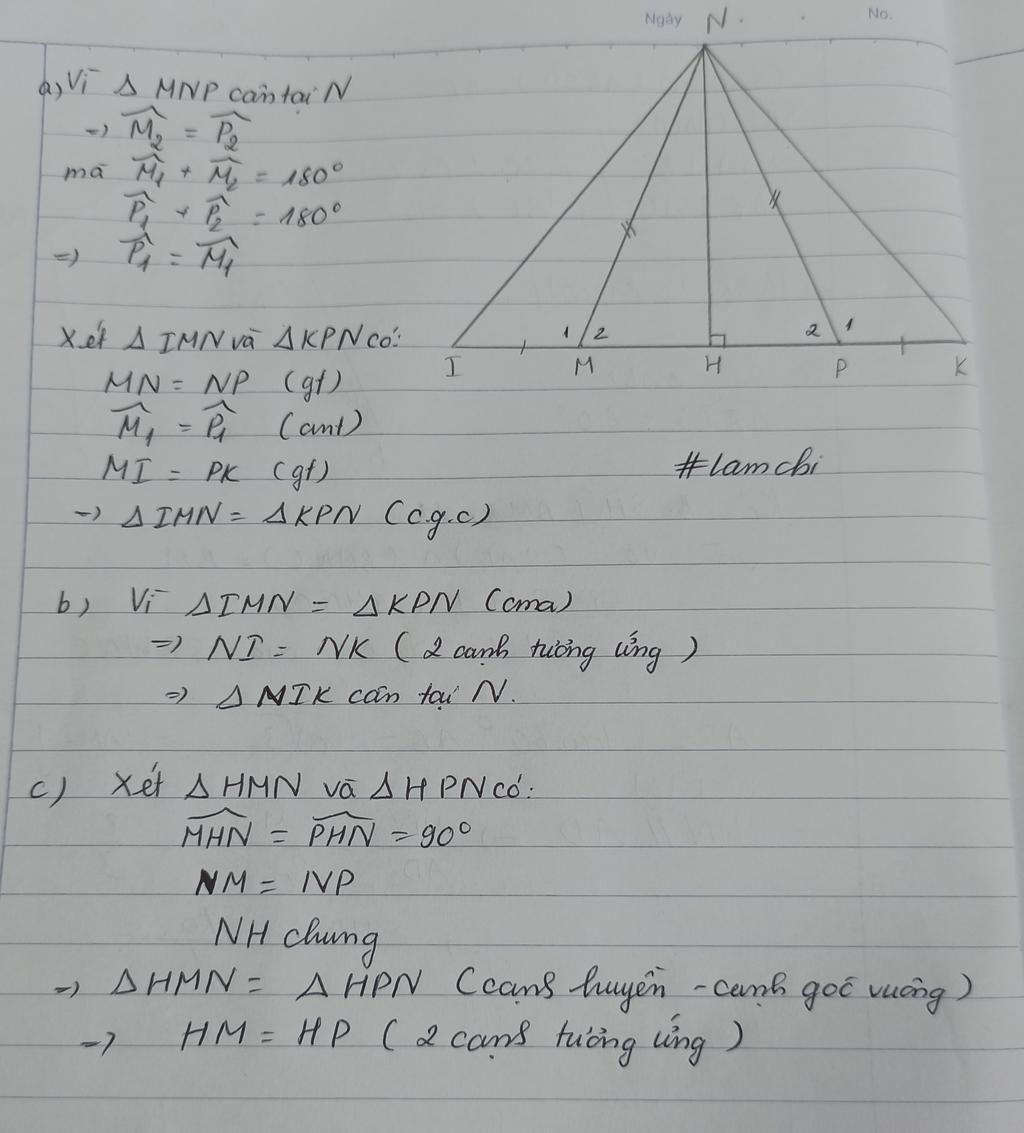 Ngày N. No.
a) Vì Δ MNP cân tại N
=> M̂₂ = P̂₂
mà M̂₁ + M̂₂ = 180°
P̂₁ + P̂₂ = 180°
=> P̂₁ = M̂₁
1 2 2 1
I M H P K
Xét Δ IMN và Δ KPN có:
MN = NP (gt)
M̂₁ = P̂₁ (cmt)
MI = PK (gt)
=> Δ IMN = Δ KPN (c.g.c)
#lamchi
b) Vì Δ IMN = Δ KPN (cma)
=> NI = NK ( 2 cạnh tương ứng )
=> Δ NIK cân tại N.
c) Xét Δ HMN và Δ HPN có:
M͡HN = P͡HN = 90°
NM = NP
NH chung
=> Δ HMN = Δ HPN (cạnh huyền - cạnh góc vuông)
=> HM = HP ( 2 cạnh tương ứng )